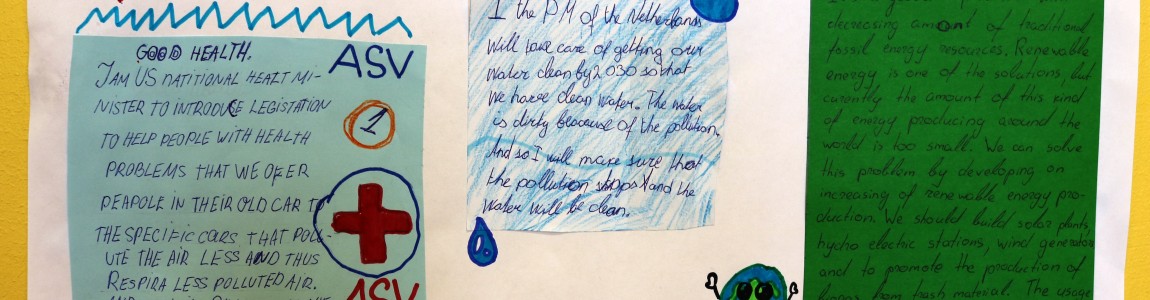 GOOD HEALTH.
I AM US NATITIONAL HEALT MI-
NISTER TO INTRODUCE LEGISTATION
TO HELP PEOPLE WITH HEALTH
PROBLEMS THAT WE OFER
PEAPOLE IN THEIR OLD CAR TO
THE SPECIFIC CARS THAT POLL-
UTE THE AIR LESS AND THUS
RESPIRA LESS POLLUTED AIR.
ASV
1
ASV
I the PM of the Netherlands
Will take care of getting our
Water clean by 2030 so that
We have clean water. The water
is dirty beacause of the pollution,
And so I will make sure that
the pollution stops and the
Water will be clean.
decreasing amount of traditional
fossil energy resources. Renewable
energy is one of the solutions, but
curently the amount of this kind
of energy producing around the
world is too small. We can solve
this problem by developing an
increasing of renewable energy pro-
duction. We should build solar plants,
hydro electric stations, wind generators
and to promote the production of
from trash material. The usage